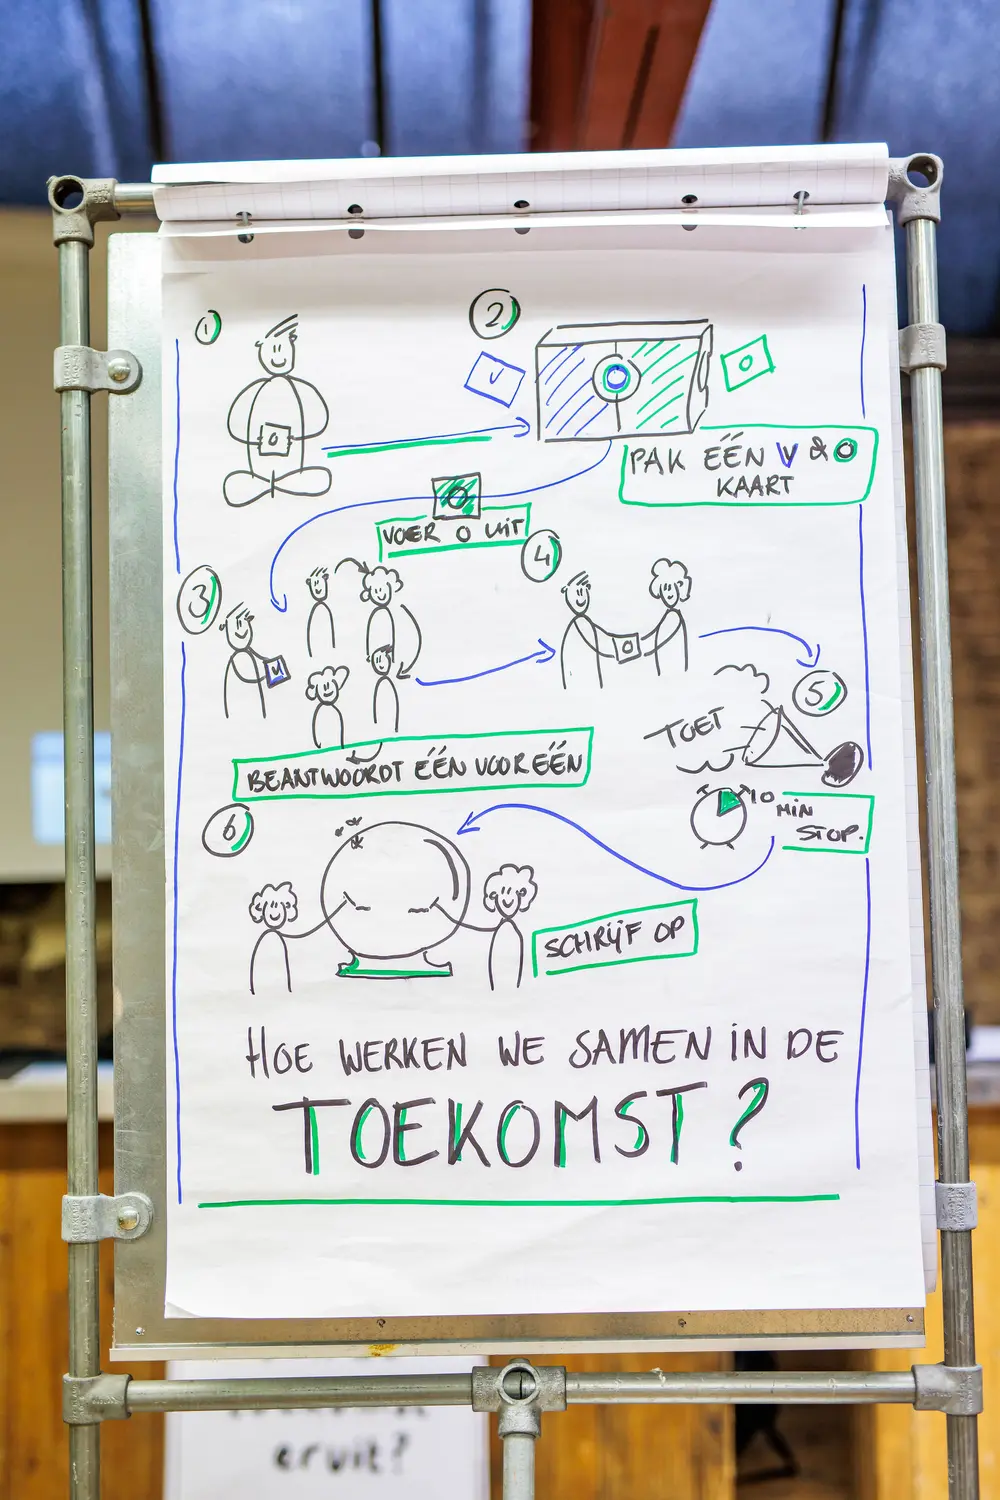 1
2
V
O
O
PAK ÉÉN V & O
KAART
VOER O UIT
3
4
V
O
5
TOET
BEANTWOORDT ÉÉN VOOR ÉÉN
10
MIN
STOP.
6
SCHRIJF OP
HOE WERKEN WE SAMEN IN DE
TOEKOMST?
eruit?